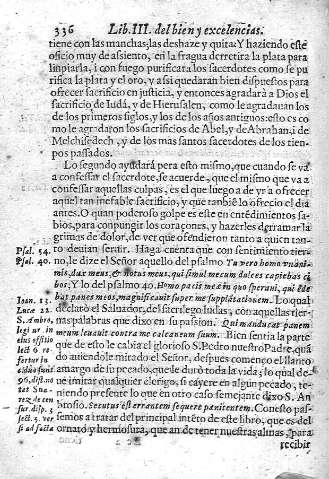 336 Lib. III. del bien y excelencias.
tiene con las manchas, las deshaze y quita: Y haziendo este
oficio muy de assiento, en la fragua derretira la plata para
limpiarla, i con fuego purificara los sacerdotes como se pu
rifica la plata y el oro, y assi quedarán bien dispuestos para
ofrecer sacrificio en justicia, y entonces agradarà a Dios el
sacrificio de Iudá, y de Hierusalen, como le agradauan los
de los primeros siglos, y los de los años antiguos: esto es co
mo le agradaron los sacrificios de Abel, y de Abrahan, i de
Melchisedech, y de los mas santos sacerdotes de los tiem
pos passados.
Lo segundo ayudará pera esto mismo, que cuando se va
a confessar el sacerdote, se acuerde, que el mismo que va a
confessar aquellas culpas, es el que luego a de yr a ofrecer
aquel tan inefable sacrificio, y que tanbiē lo ofrecio el dia
antes. O quan poderoso golpe es este en entēdimientos sa-
bios, para conpungir los coraçones, y hazerles derramar la
grimas de dolor, de ver que ofendieron tanto a quien tan-
Psal. 54. to deuian seruir. Haga cuenta que con sentimiento tier-
Psal. 40. no, le dize el Señor aquello del psalmo Tu vero homo vnáni-
mis, dux meus, & notus meus, qui simul mecum dulces capiebas ci
bos; Y lo del psalmo 40. Homo pacis meæ in quo speraui, qui ede
Ioan. 13. bat panes meos, magnificauit super me supplātationem. Lo qual
Luca 22. declaró el Saluador, del sacrilego Iudas, con aquellas tier-
S. Ambro. nas palabras que dixo en su passion. Qui manducat panem
legi ur in meum leuabit contra me calcaneum suum. Bien sentia la parte
eius offitio que de esto le cabia el glorioso S. Pedro nuestro Padre, quā
lect. 6 do autiendole mirado el Señor, despues començo el llanto
amargo de su pecado, que le duró toda la vida; lo qual de-
ue imitar qualquier clerigo, si cayere en algun pecado, te-
niendo presente lo que en otro caso semejante dixo S. An
brosio. Secutus est errantem sequere pœnitentem. Con esto pas
semos a tratar del principal intēto de este libro, que es del
ornato y hermosura, que an de tener nuestras almas, para
recibir